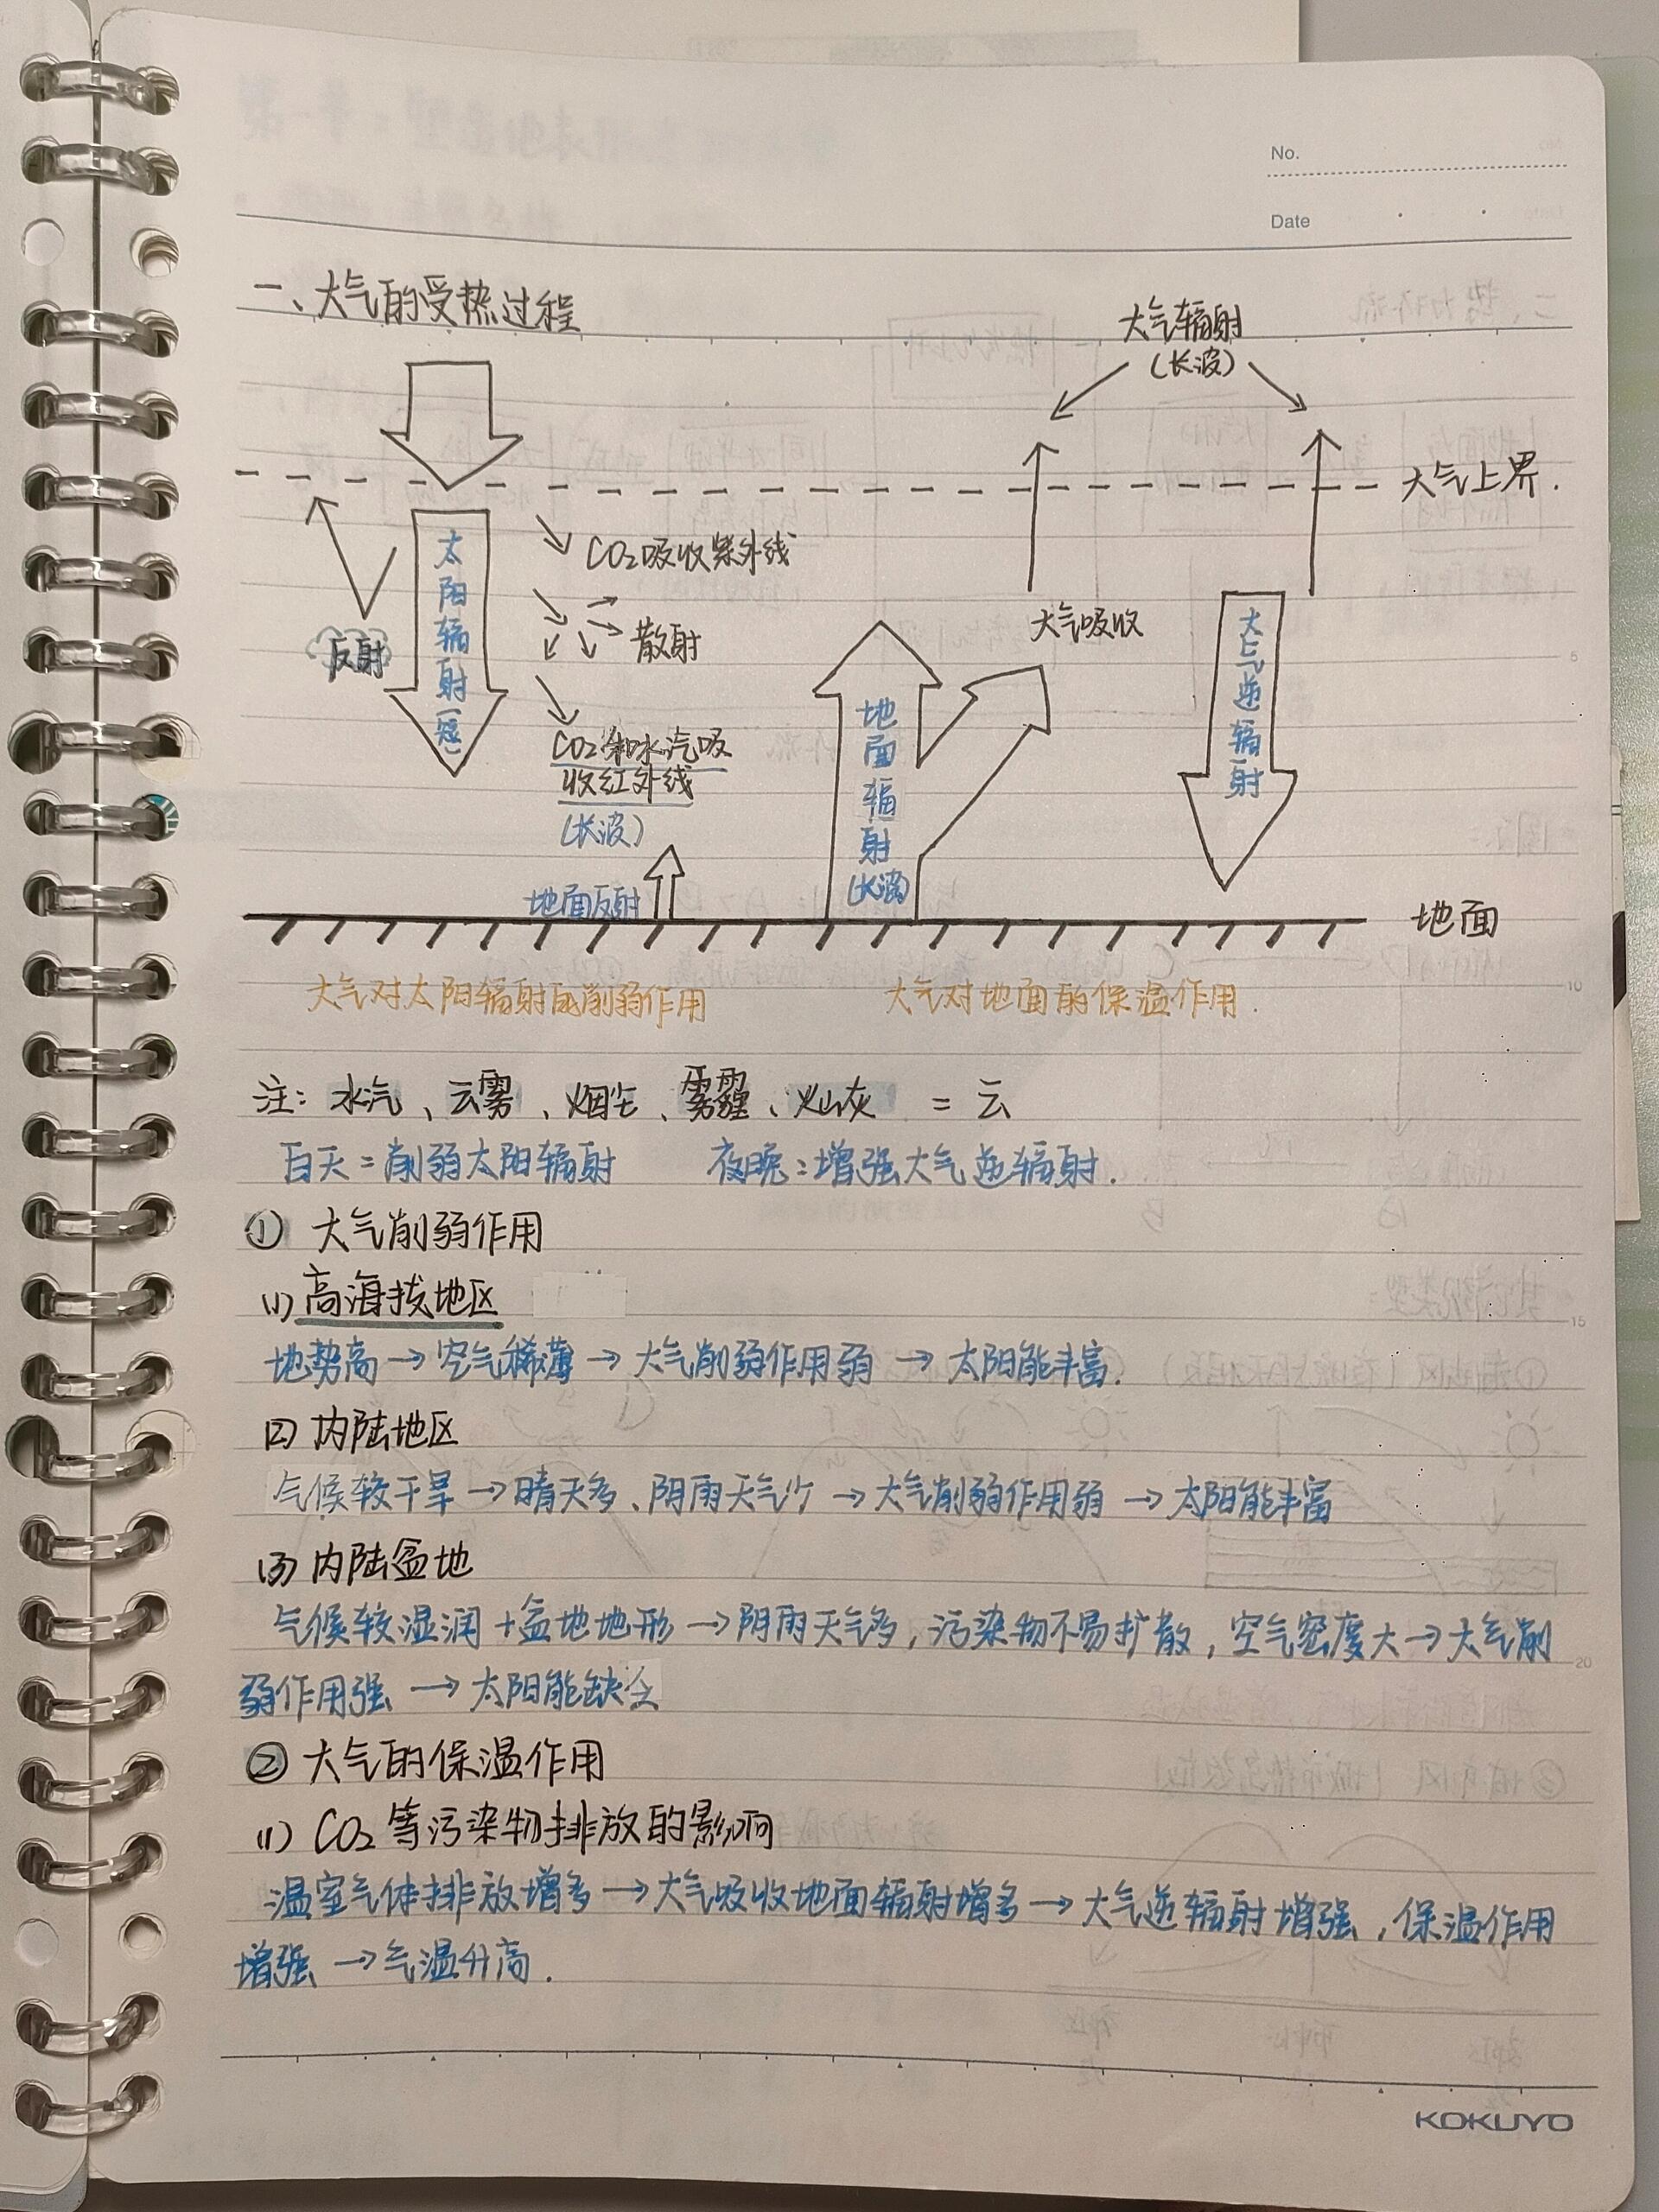 No.
Date
一、大气的受热过程
大气辐射
(长波)
大气上界.
太阳辐射(短)
CO₂吸收紫外线
散射
反射
CO₂和水汽吸
收红外线
(长波)
地面反射
地面辐射(长波)
大气吸收
大气逆辐射
地面
大气对太阳辐射的削弱作用
大气对地面的保温作用.
注: 水汽、云雾、烟尘、雾霾、火山灰 = 云
白天:削弱太阳辐射 夜晚:增强大气逆辐射.
① 大气削弱作用
(1) 高海拔地区
地势高→空气稀薄→大气削弱作用弱→太阳能丰富.
(2) 内陆地区
气候较干旱→晴天多、阴雨天气少→大气削弱作用弱→太阳能丰富
(3) 内陆盆地
气候较湿润+盆地地形→阴雨天气多,污染物不易扩散,空气密度大→大气削
弱作用强→太阳能缺乏
② 大气的保温作用
(1) CO₂等污染物排放的影响
温室气体排放增多→大气吸收地面辐射增多→大气逆辐射增强,保温作用
增强→气温升高.
5
10
15
20
KOKUYO